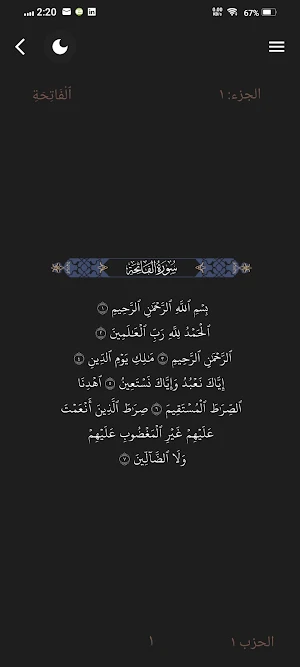 2:20
0.00 KB/s
67%
الجزء: ١
ٱلْفَاتِحَةِ
سُورَةُ الْفَاتِحَةِ
بِسْمِ ٱللَّهِ ٱلرَّحْمَٰنِ ٱلرَّحِيمِ ١
ٱلْحَمْدُ لِلَّهِ رَبِّ ٱلْعَٰلَمِينَ ٢
ٱلرَّحْمَٰنِ ٱلرَّحِيمِ ٣ مَٰلِكِ يَوْمِ ٱلدِّينِ ٤
إِيَّاكَ نَعْبُدُ وَإِيَّاكَ نَسْتَعِينُ ٥ ٱهْدِنَا
ٱلصِّرَٰطَ ٱلْمُسْتَقِيمَ ٦ صِرَٰطَ ٱلَّذِينَ أَنْعَمْتَ
عَلَيْهِمْ غَيْرِ ٱلْمَغْضُوبِ عَلَيْهِمْ
وَلَا ٱلضَّآلِّينَ ٧
الحزب ١
١